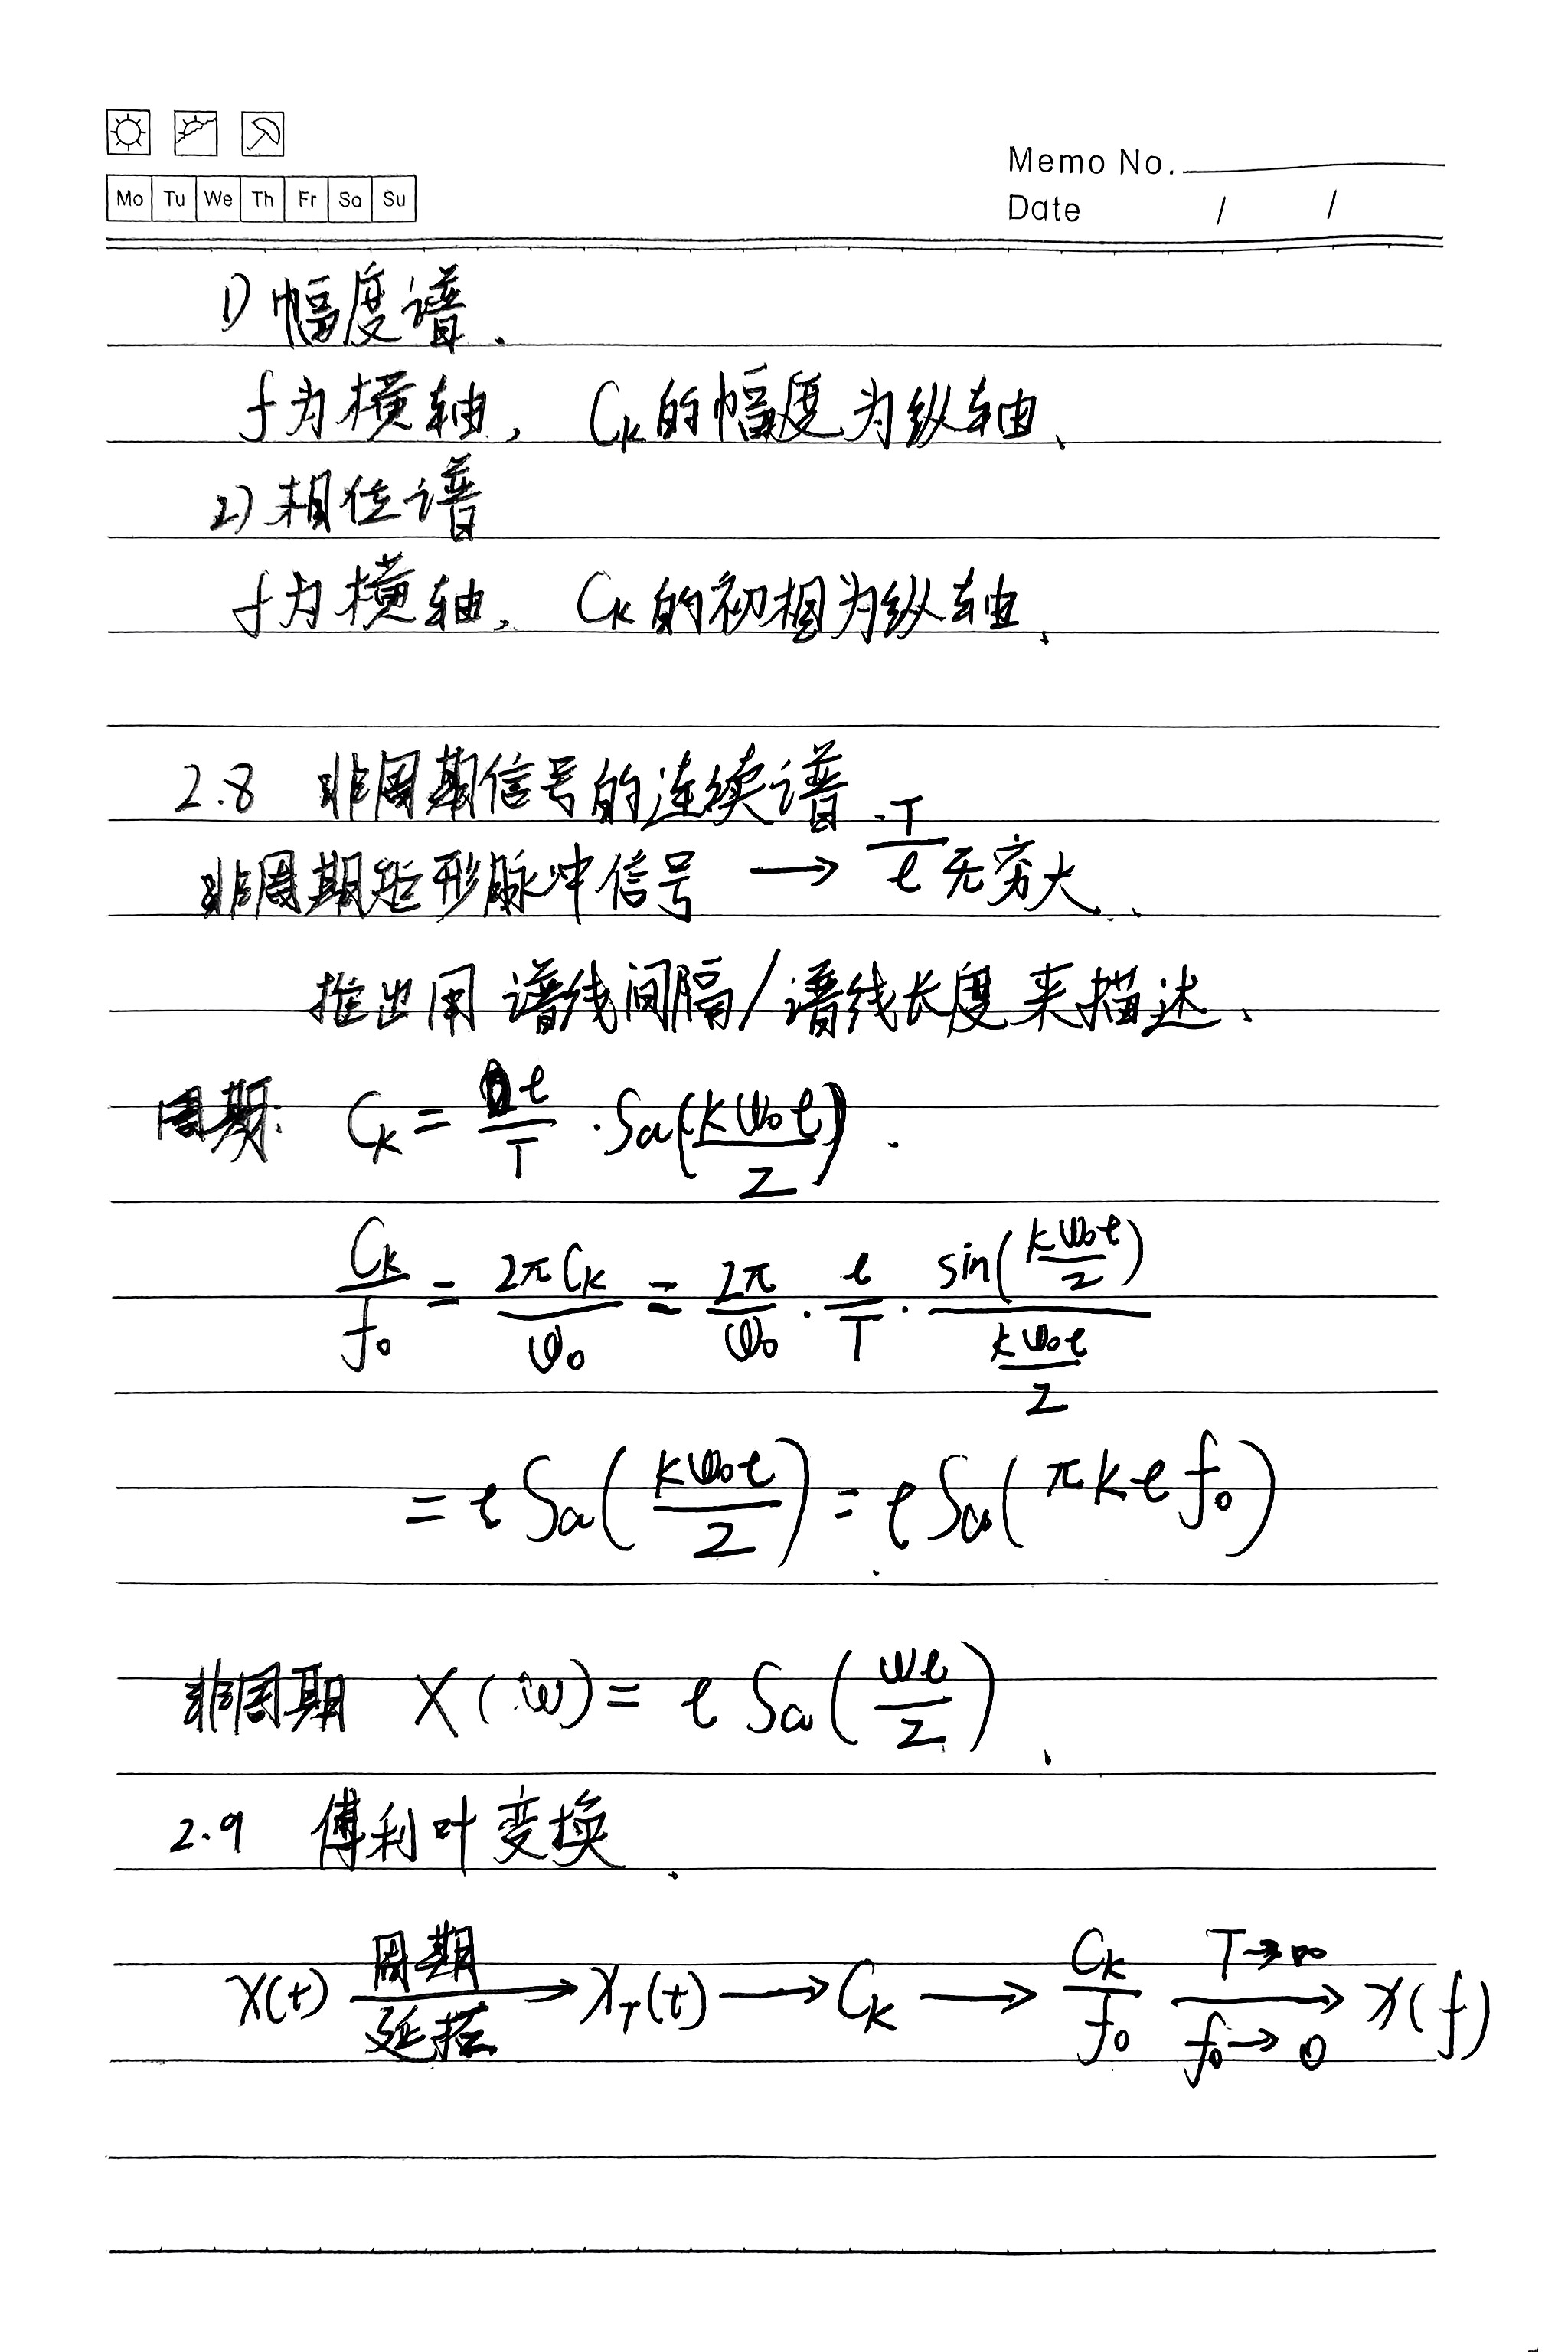 Mo Tu We Th Fr Sa Su
Memo No.
Date / /
1) 幅度谱.
f为横轴, Ck的幅度为纵轴、
2) 相位谱
f为横轴, Ck的初相为纵轴、
2.8 非周期信号的连续谱
非周期矩形脉冲信号 → T/τ 无穷大、
推出用 谱线间隔/谱线长度来描述、
周期: Ck = τ/T · Sa(kω₀τ/2).
Ck/f₀ = 2πCk/ω₀ = 2π/ω₀ · τ/T · sin(kω₀τ/2)/(kω₀τ/2)
= τSa(kω₀τ/2) = τSa(πkτf₀)
非周期 X(ω) = τSa(ωτ/2)、
2.9 傅利叶变换、
x(t) 周期延拓→ xT(t) → Ck → Ck/f₀ T→∞ f₀→0 → X(f)